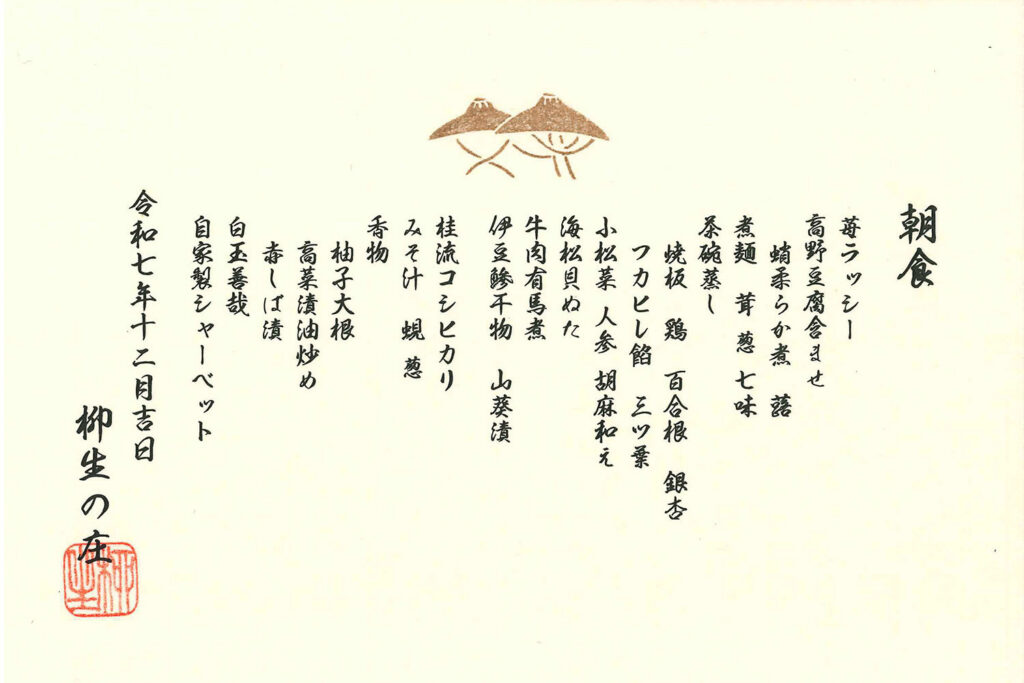 朝食
苺ラッシー
高野豆腐含ませ
蛸柔らか煮 蕗
煮麺 茸 葱 七味
茶碗蒸し
焼板 鶏 百合根 銀杏
フカヒレ餡 三ツ葉
小松菜 人参 胡麻和え
海松貝ぬた
牛肉有馬煮
伊豆鯵干物 山葵漬
桂流コシヒカリ
みそ汁 蜆 葱
香物
柚子大根
高菜漬油炒め
赤しば漬
白玉善哉
自家製シャーベット
令和七年十二月吉日
柳生の庄